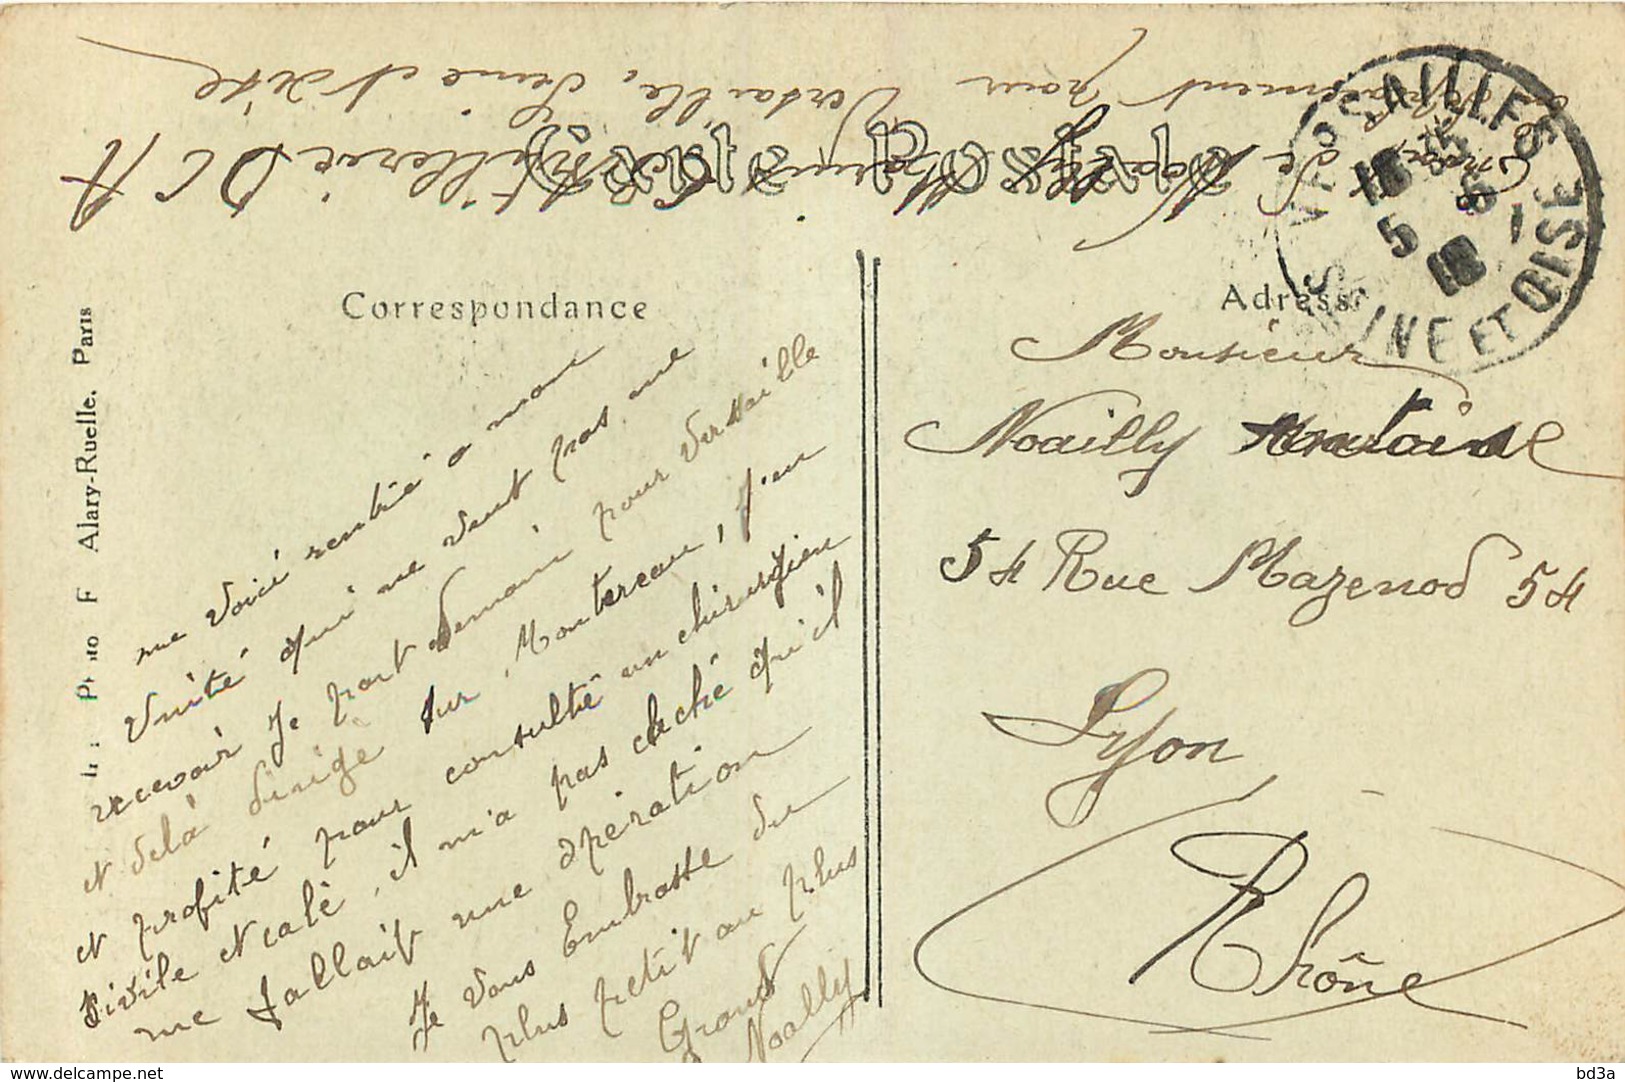 Envoi de Noailly Maurice Artillerie D C A
en déplacement pour Versaille, Seine et Oise
VERSAILLES
18 35
5 - 6
18
SEINE ET OISE
Correspondance
Adresse
me voici rentré a mon
Unité qui ne veut pas me
recevoir Je part demain pour Versaille
et delà dirigé sur Montereau, j'en
et profité pour consulté un chirurgien
civile et calé, il m'a pas caché qu'il
me fallait une opération
Je vous Embrasse du
plus petit au plus
Grand
Noailly
Monsieur
Noailly Antoine
54 Rue Mazenod 54
Lyon
Rhône
Alary-Ruelle. Paris
www.delcampe.net
bd3a